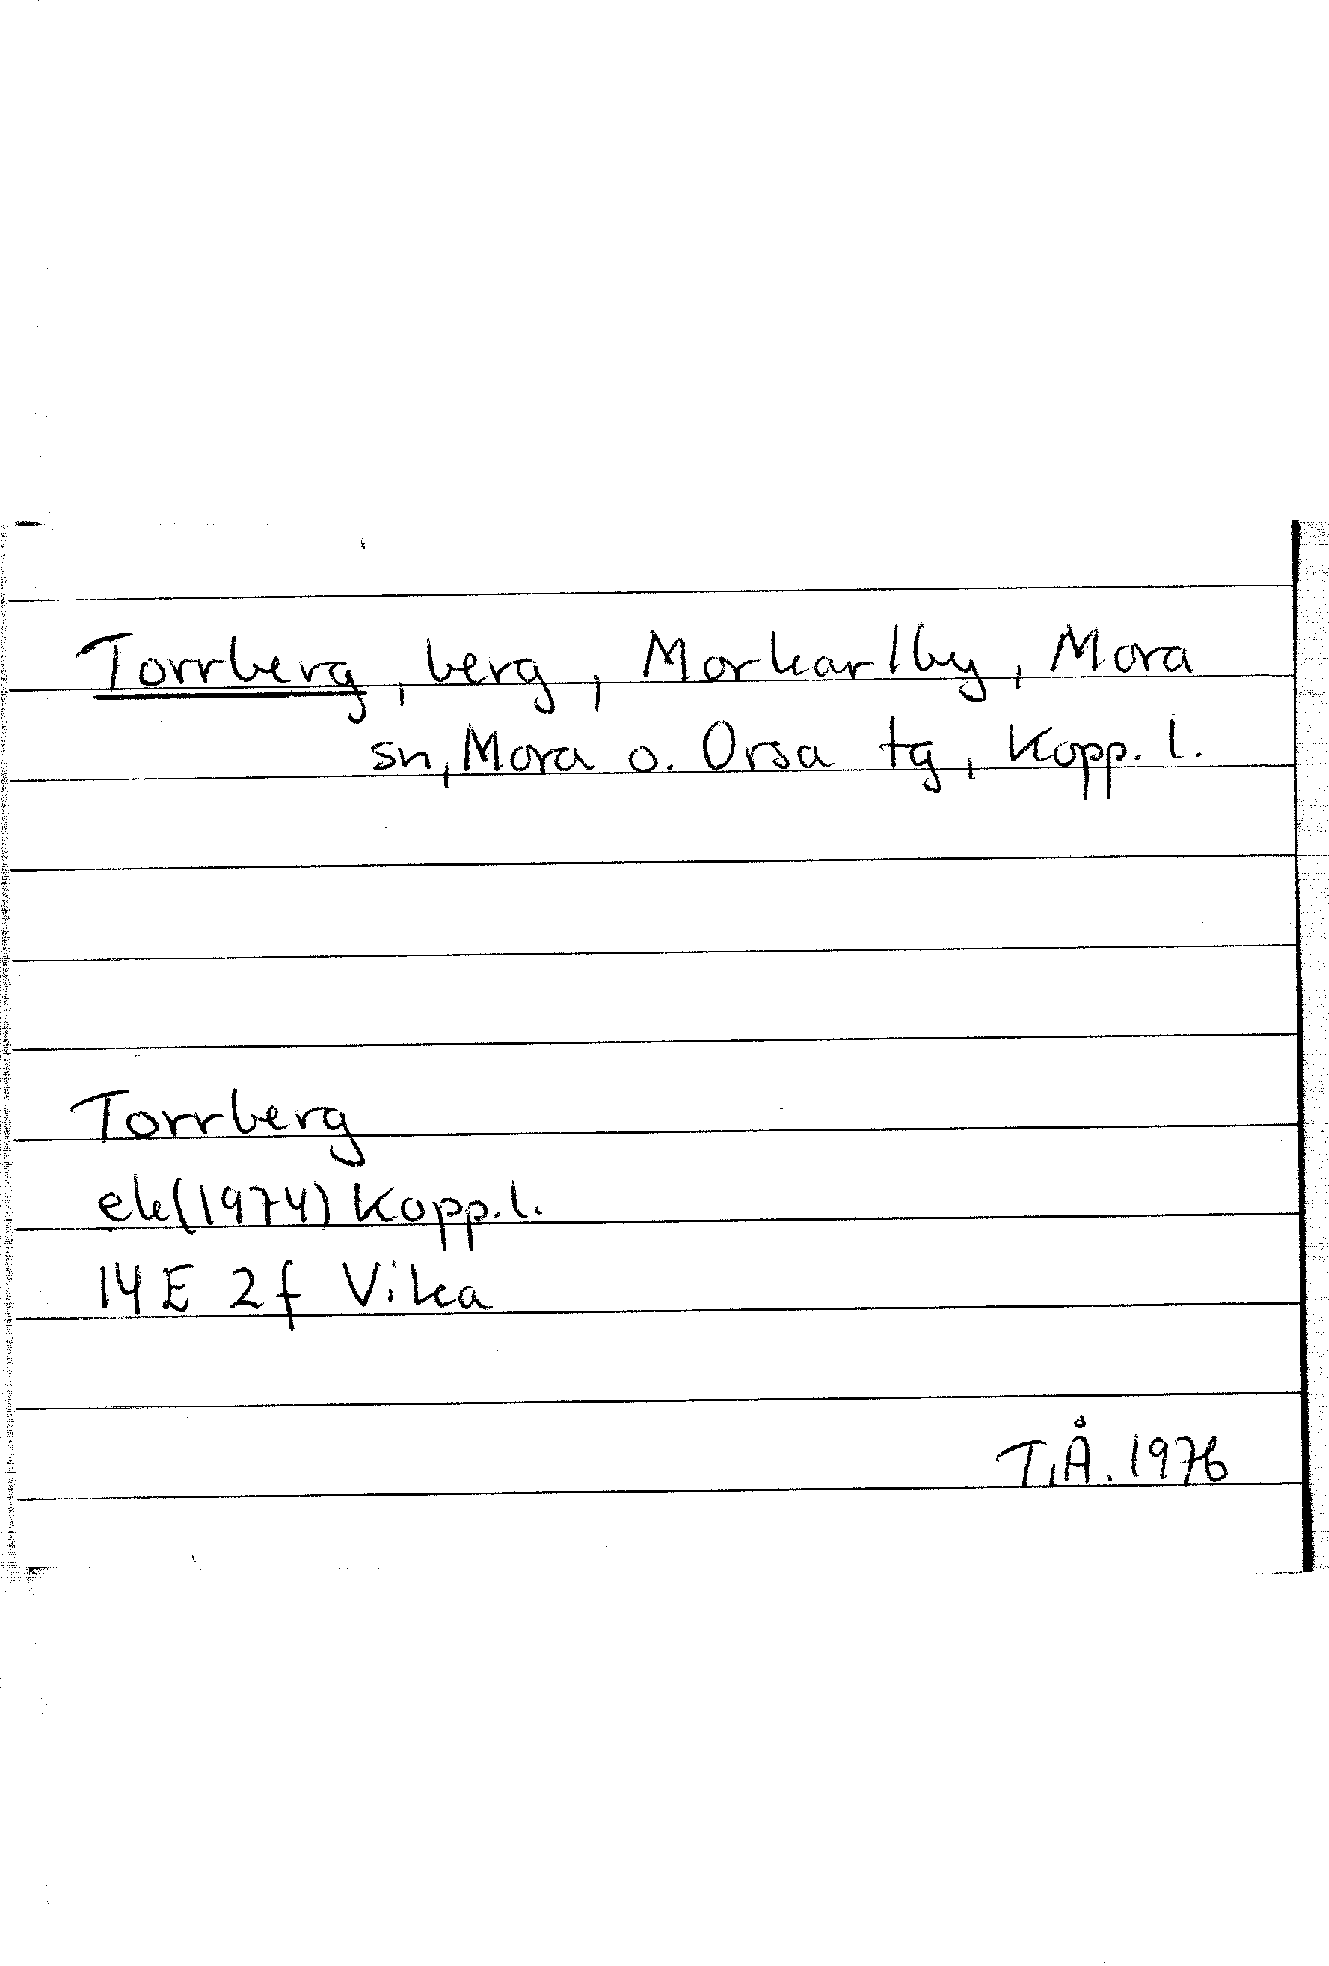 Torrberg, berg, Morkarlby, Mora
sn, Mora o. Orsa tg, Kopp. l.
Torrberg
ek(1974) Kopp.l.
14 E 2 f Vika
T.Å. 1976